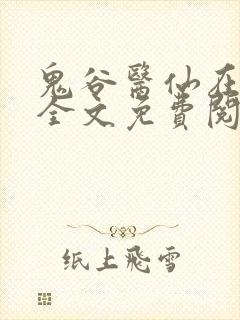 鬼谷醫仙在
全文免費閱
纸上飛雪